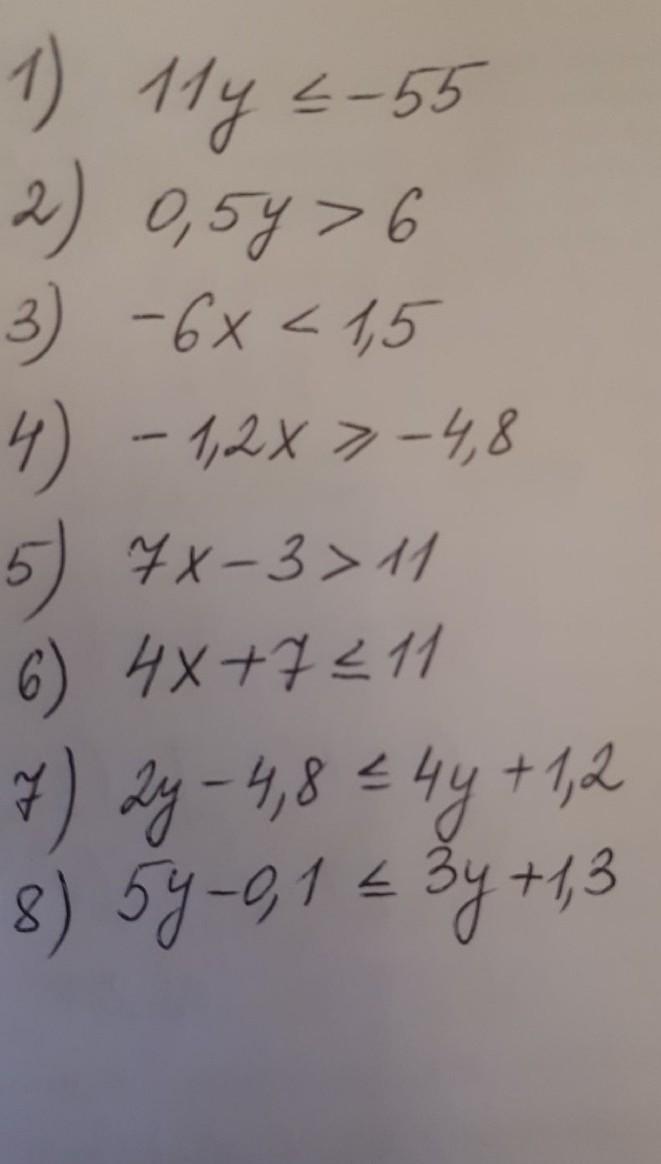 1) 11y ≤ -55
2) 0,5y > 6
3) -6x < 1,5
4) -1,2x ⩾ -4,8
5) 7x - 3 > 11
6) 4x + 7 ≤ 11
7) 2y - 4,8 ≤ 4y + 1,2
8) 5y - 0,1 ≤ 3y + 1,3